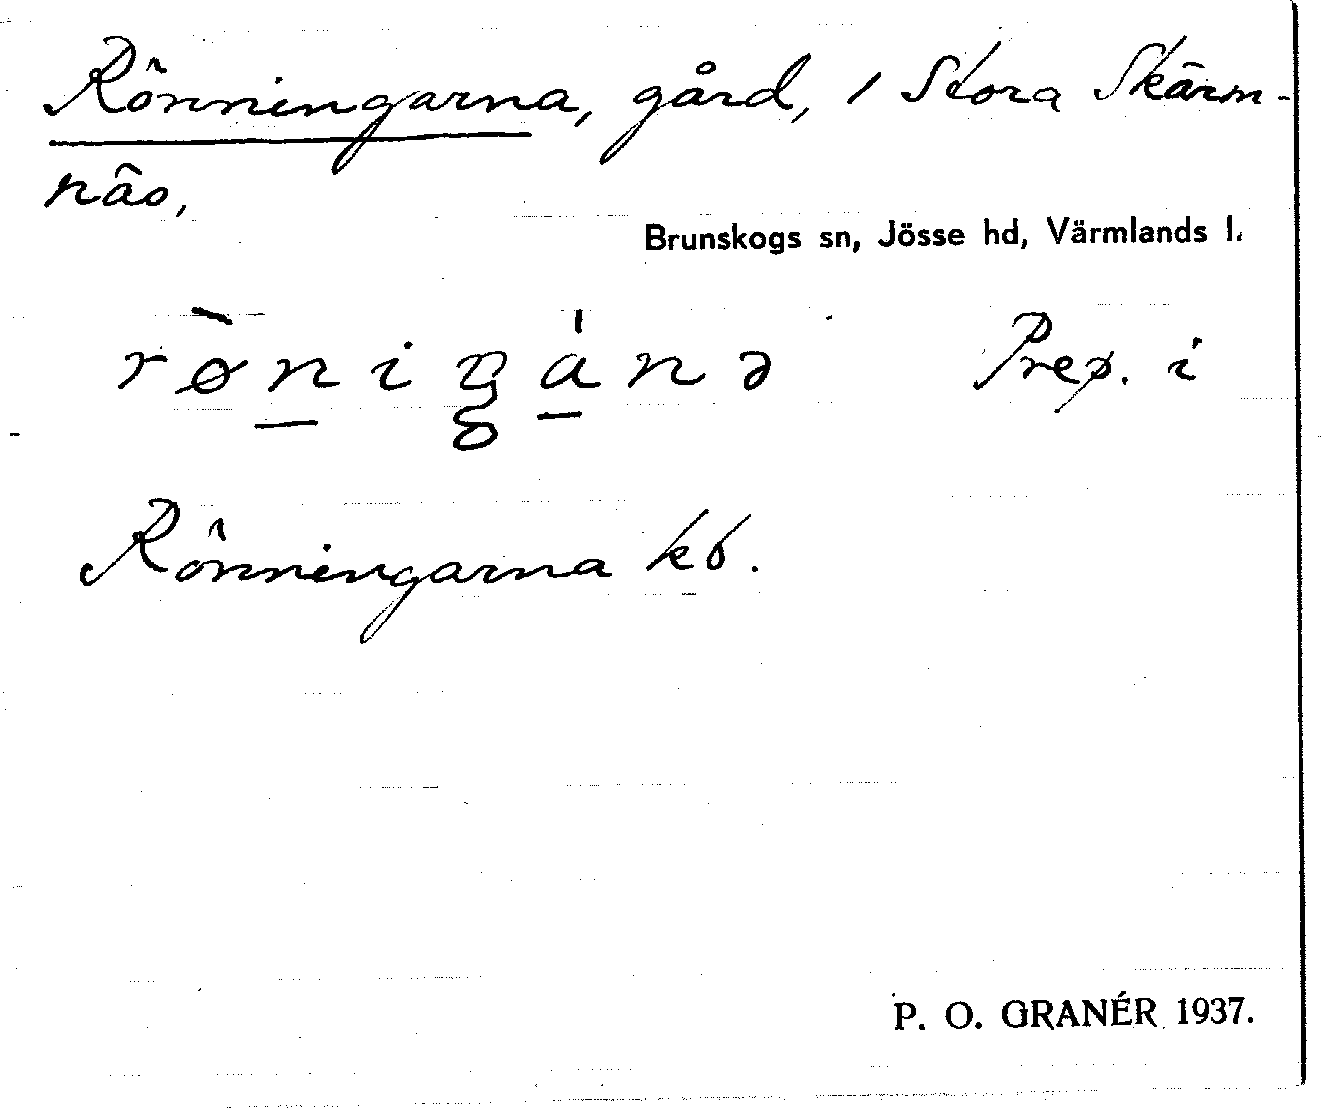 Rönningarna, gård, 1 Stora Skärm-
näs,
Brunskogs sn, Jösse hd, Värmlands l.
rø̀nigánə Prep. i
Rönningarna kb.
P. O. GRANÉR 1937.